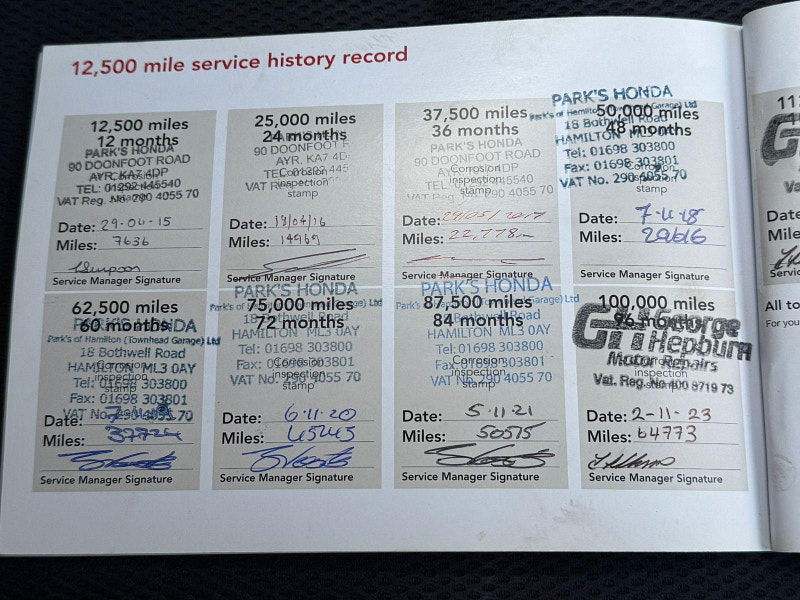 12,500 mile service history record
12,500 miles
12 months
PARK'S HONDA
90 DOONFOOT ROAD
AYR. KA7 4DP
TEL: 01292 445540
VAT Reg. No. 290 4055 70
Corrosion
inspection
stamp
Date: 29-04-15
Miles: 7636
Service Manager Signature
25,000 miles
24 months
PARK'S HONDA
90 DOONFOOT ROAD
AYR. KA7 4D
Corrosion
inspection
stamp
Date: 18/04/16
Miles: 14969
Service Manager Signature
37,500 miles
36 months
PARK'S HONDA
90 DOONFOOT ROAD
AYR. KA7 4DP
Corrosion
inspection
stamp
Date: 29/05/2017
Miles: 22,778
Service Manager Signature
PARK'S HONDA
50,000 miles
48 months
18 Bothwell Road
HAMILTON ML3 0AY
Tel: 01698 303800
Fax: 01698 303801
VAT No. 290 4055 70
Date: 7-11-18
Miles: 29616
Service Manager Signature
62,500 miles
60 months
PARK'S HONDA
Park's of Hamilton (Townhead Garage) Ltd
18 Bothwell Road
HAMILTON ML3 0AY
Tel: 01698 303800
Fax: 01698 303801
VAT No. 290 4055 70
Date:
Miles:
Service Manager Signature
PARK'S HONDA
75,000 miles
72 months
Bothwell Road
HAMILTON ML3 0AY
Tel: 01698 303800
Fax: 01698 303801
VAT No. 290 4055 70
Corrosion
inspection
stamp
Date: 6-11-20
Miles: 45245
Service Manager Signature
PARK'S HONDA
87,500 miles
84 months
Bothwell Road
HAMILTON ML3 0AY
Tel: 01698 303800
Fax: 01698 303801
VAT No. 290 4055 70
Corrosion
inspection
stamp
Date: 5-11-21
Miles: 50515
Service Manager Signature
100,000 miles
96 months
GH George
Hepburn
Motor Repairs
Corrosion
inspection
stamp
Vat. Reg. No 400 8719 73
Date: 2-11-23
Miles: 64773
Service Manager Signature
Date
Miles
Service
All to
For you